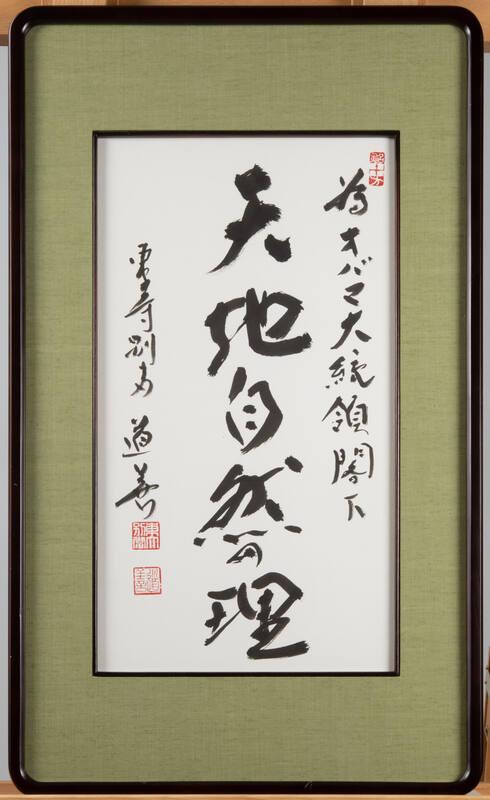 為オバマ大統領閣下
天地自然の理
東大寺別当 道善